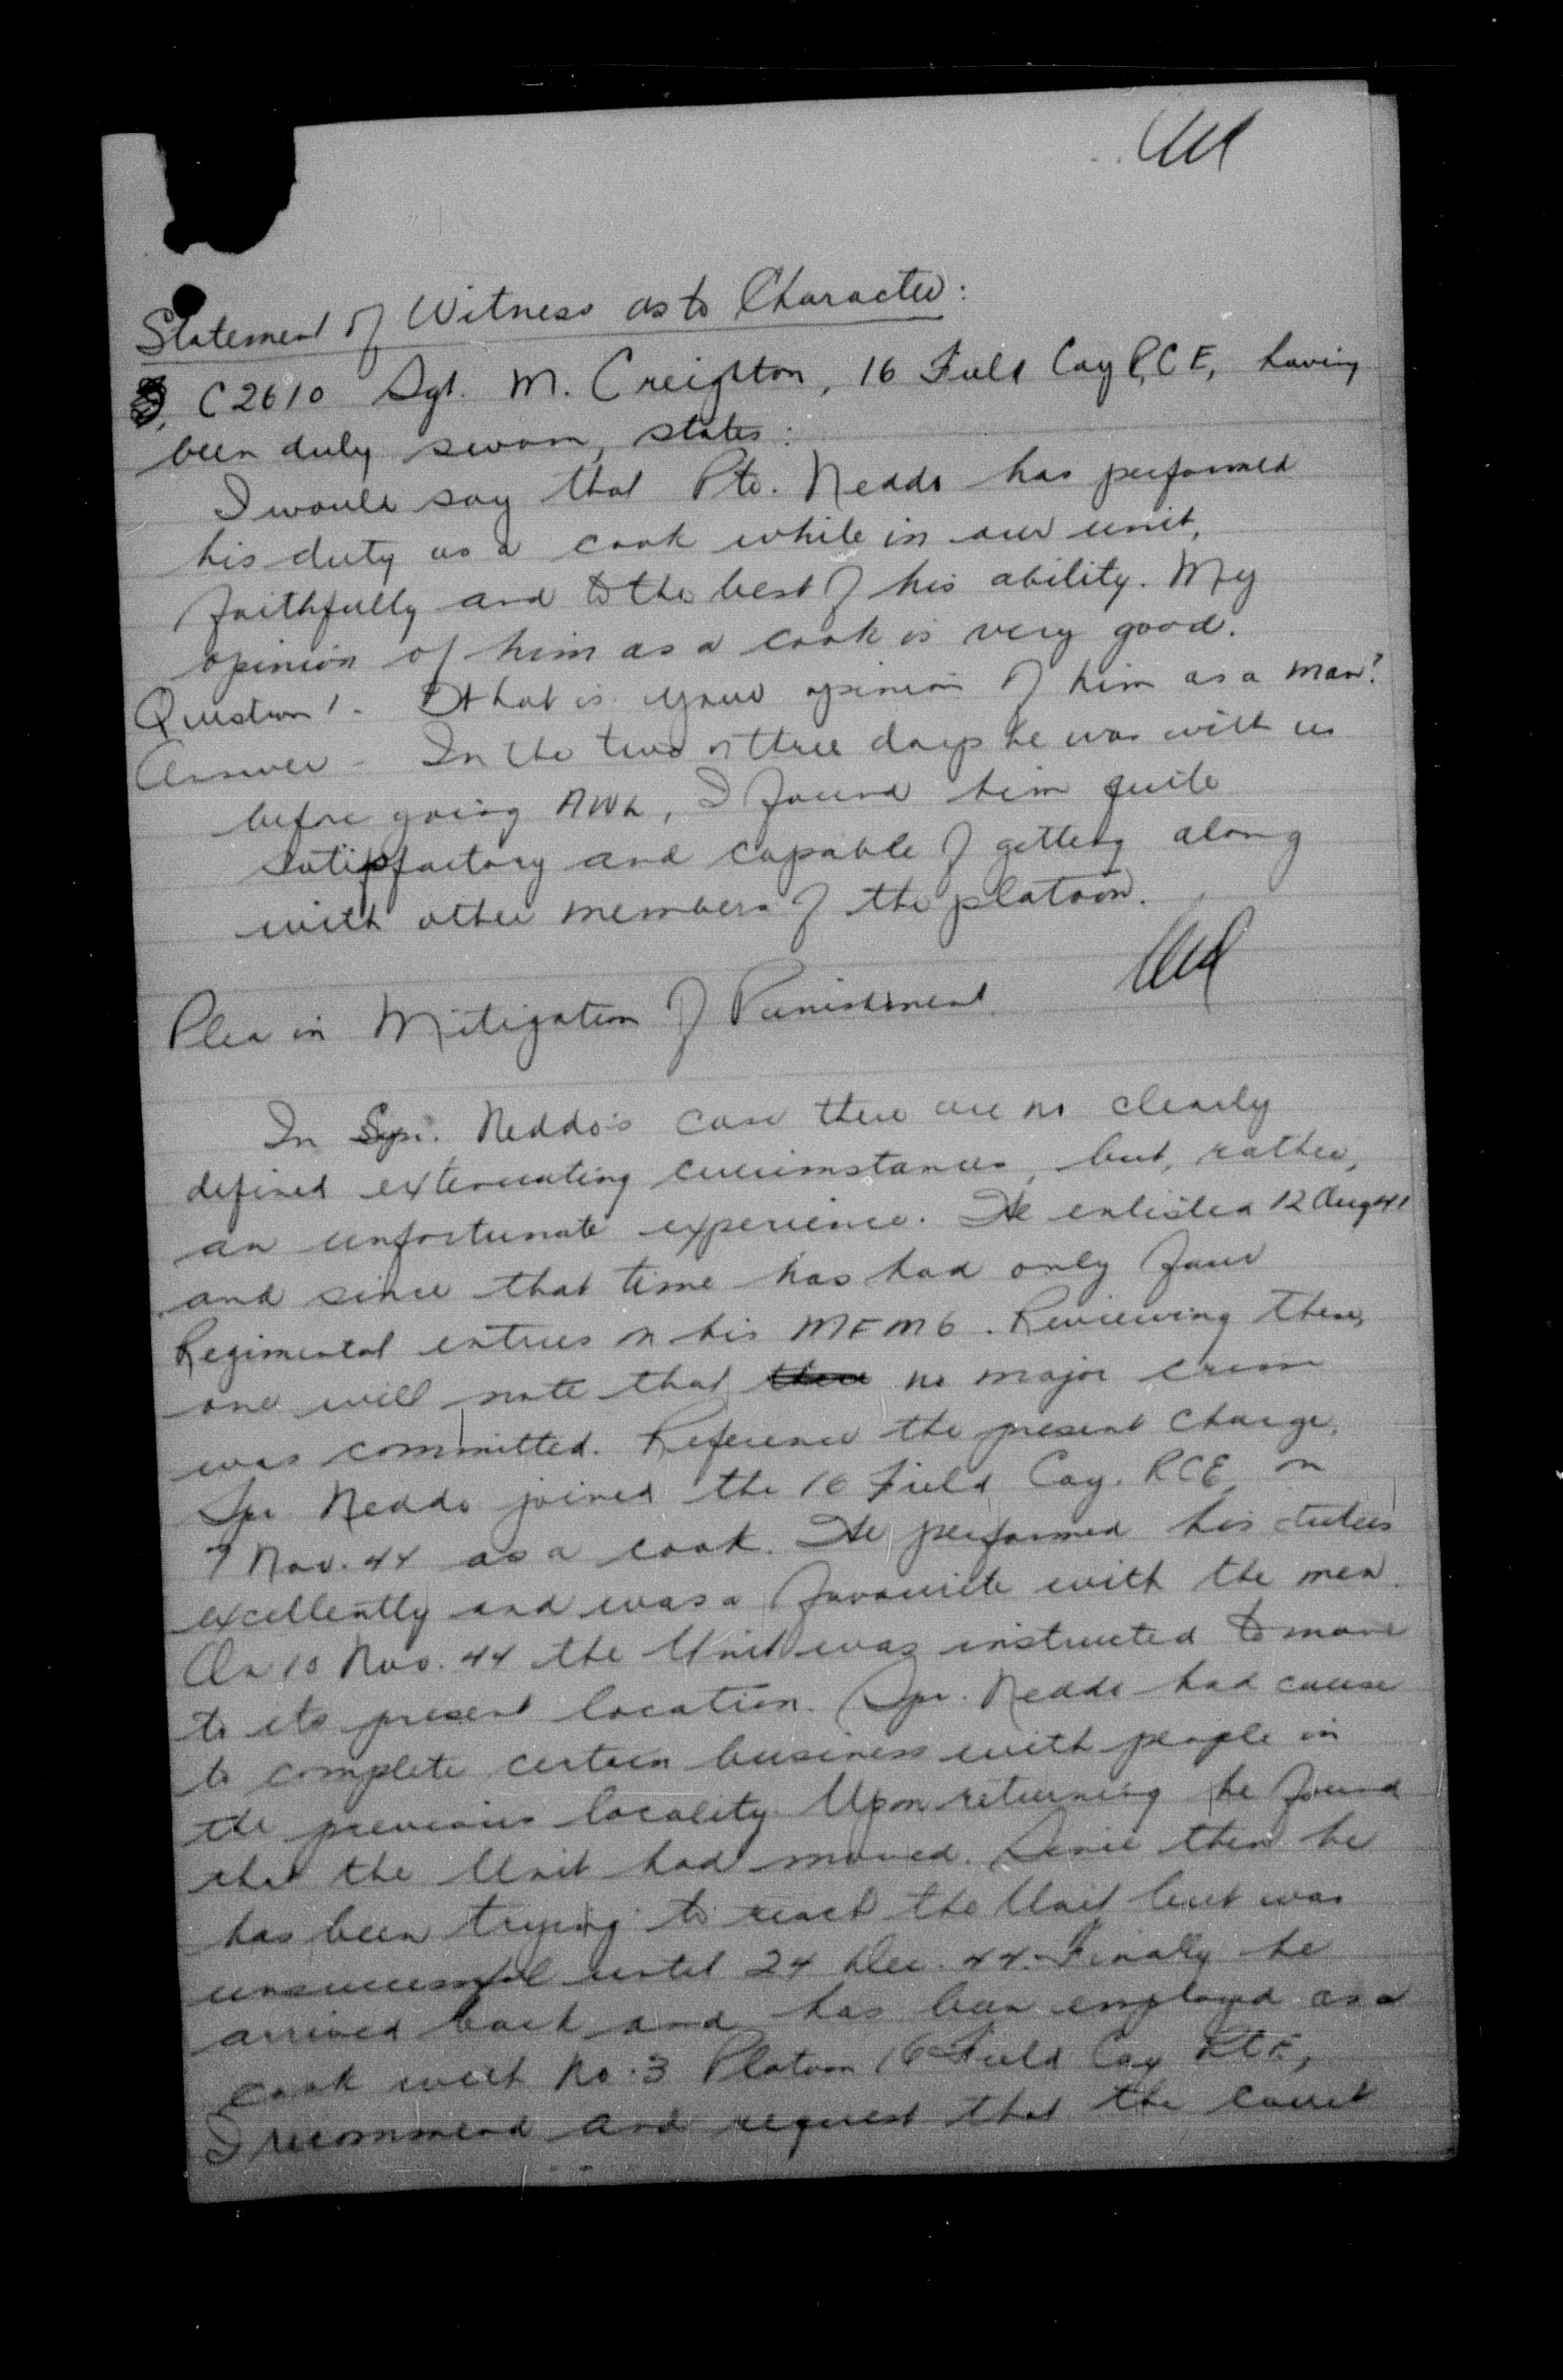 Statement of Witness as to Character:
C2610 Sgt. M. Creighton, 16 Field Coy RCE, having
been duly sworn, states:
I would say that Pte. Neddo has performed
his duty as a cook while in our unit,
faithfully and to the best of his ability. My
opinion of him as a cook is very good.
Question 1. What is your opinion of him as a man?
Answer - In the two or three days he was with us
before going AWL, I found him quite
satisfactory and capable of getting along
with other members of the platoon.
Plea in Mitigation of Punishment
In Spr. Neddo's case there are no clearly
defined extenuating circumstances, but, rather,
an unfortunate experience. He enlisted 12 Aug 41
and since that time has had only four
Regimental entries on his MFM6. Reviewing these,
one will note that there no major crime
was committed. Reference the present charge,
Spr. Neddo joined the 16 Field Coy. RCE on
7 Nov. 44 as a cook. He performed his duties
excellently and was a favourite with the men.
On 10 Nov. 44 the Unit was instructed to move
to its present location. Spr. Neddo had cause
to complete certain business with people in
the previous locality. Upon returning he found
that the Unit had moved. Since then he
has been trying to reach the Unit but was
unsuccessful until 24 Dec. 44. Finally he
arrived back and has been employed as a
cook with No. 3 Platoon 16 Field Coy RCE,
I recommend and request that the court